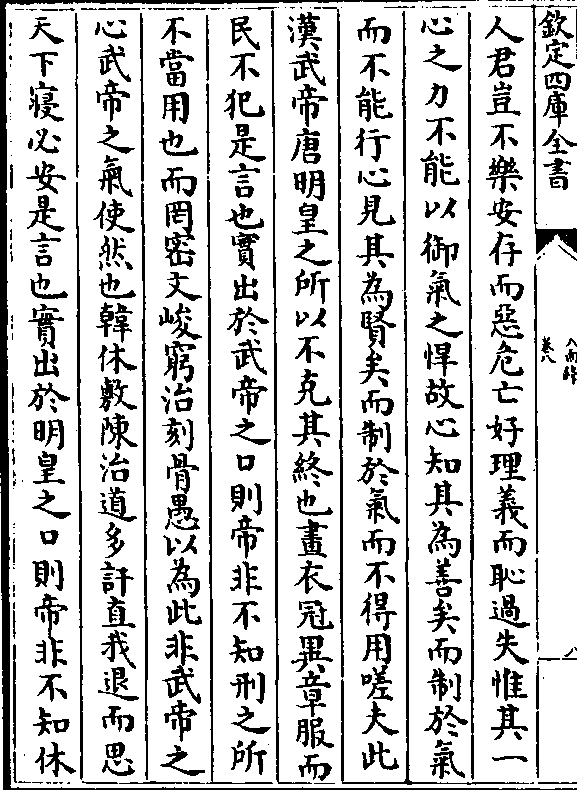 欽定四庫全書
八面鋒
卷八
八
人君豈不樂安存而惡危亡好理義而恥過失惟其一
心之力不能以御氣之悍故心知其為善矣而制於氣
而不能行心見其為賢矣而制於氣而不得用嗟夫此
漢武帝唐明皇之所以不克其終也畫衣冠異章服而
民不犯是言也實出於武帝之口則帝非不知刑之所
不當用也而罔密文峻窮治刻骨愚以為此非武帝之
心武帝之氣使然也韓休敷陳治道多訐直我退而思
天下寝必安是言也實出於明皇之口則帝非不知休